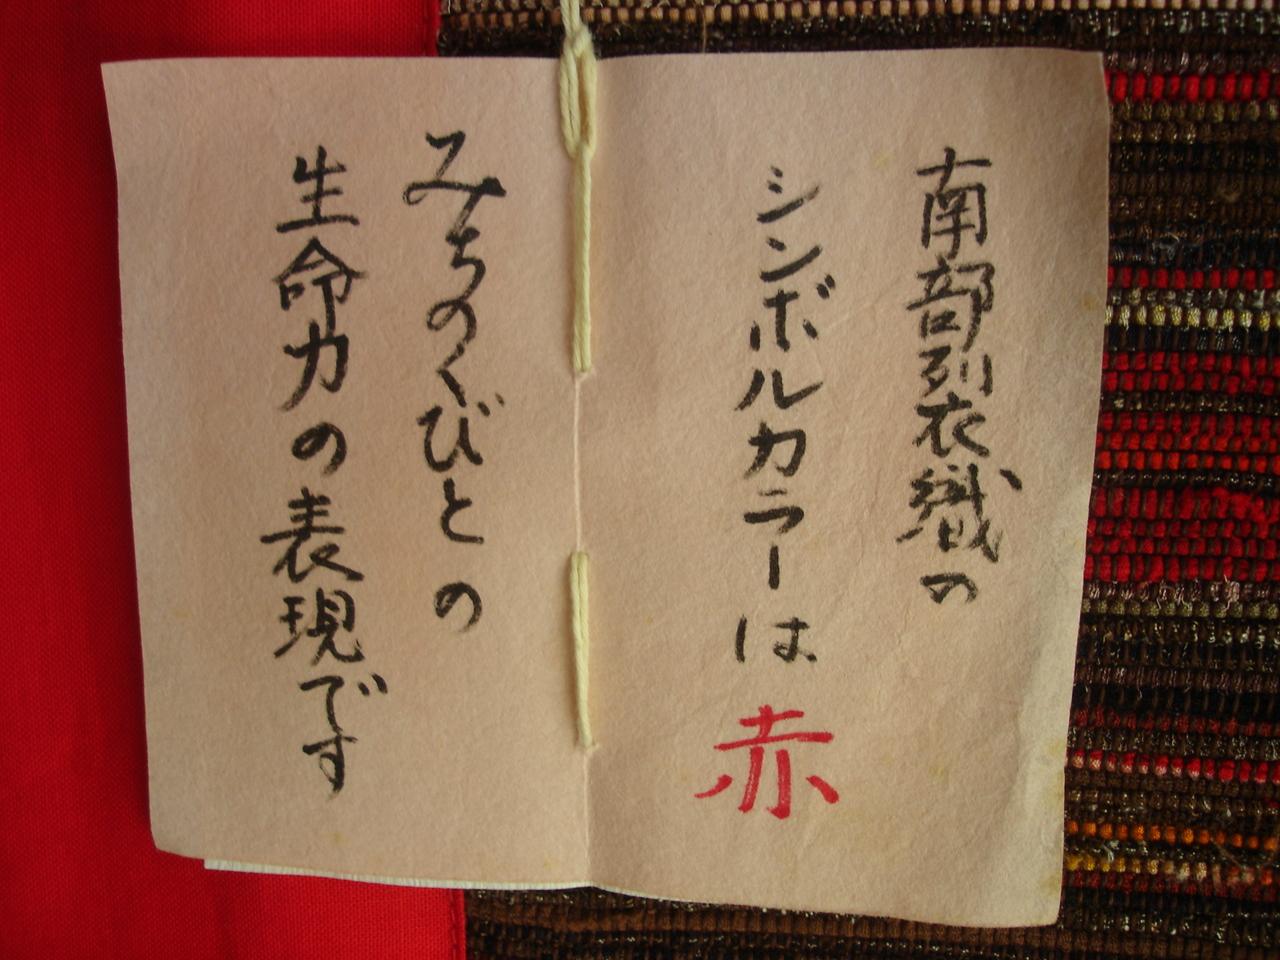 南部裂織の
シンボルカラーは赤
みちのくびとの
生命力の表現です